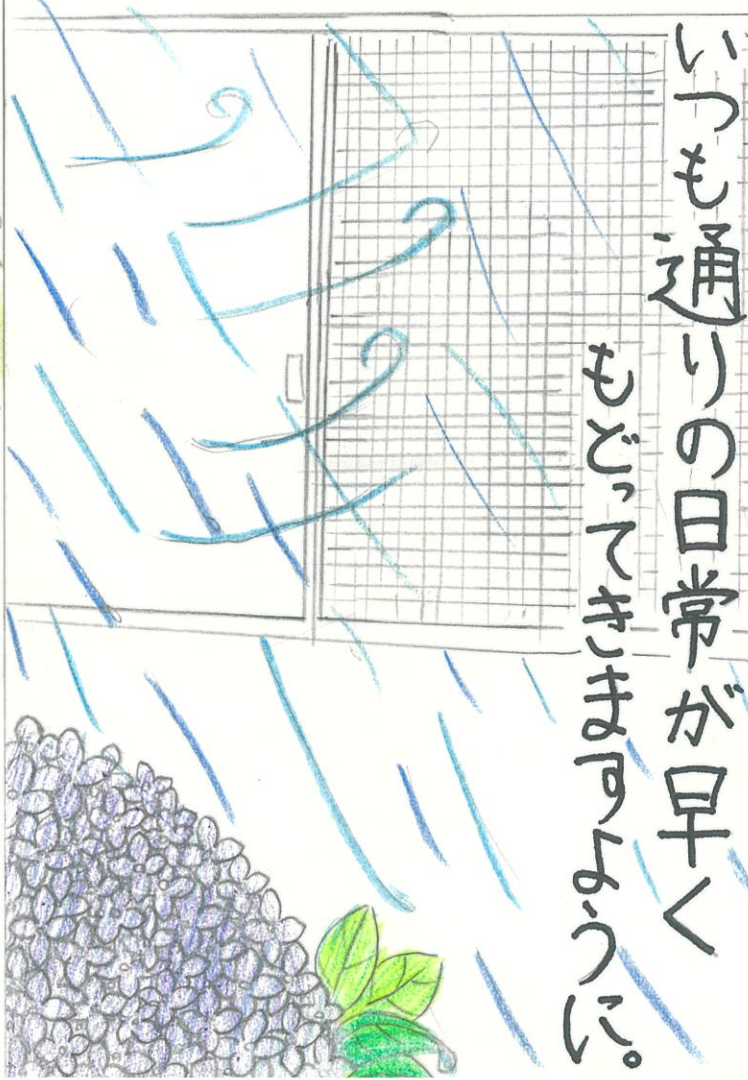 いつも通りの日常が早く
もどってきますように。